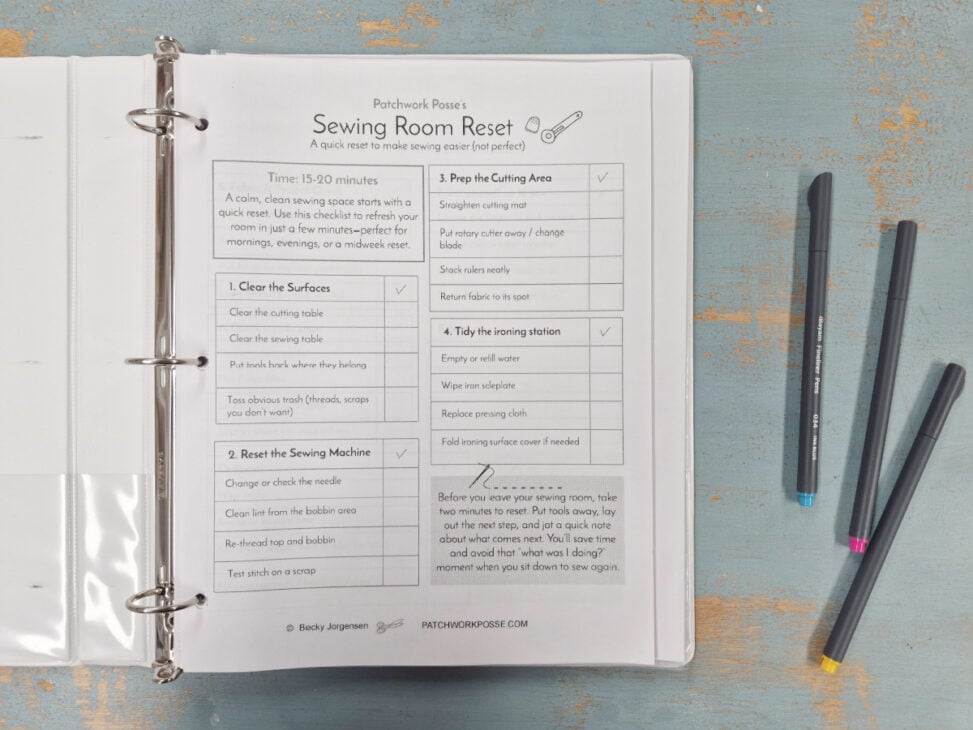 Patchwork Posse's
Sewing Room Reset
A quick reset to make sewing easier (not perfect)
Time: 15-20 minutes
A calm, clean sewing space starts with a
quick reset. Use this checklist to refresh your
room in just a few minutes—perfect for
mornings, evenings, or a midweek reset.
1. Clear the Surfaces ✓
Clear the cutting table
Clear the sewing table
Put tools back where they belong
Toss obvious trash (threads, scraps
you don't want)
2. Reset the Sewing Machine ✓
Change or check the needle
Clean lint from the bobbin area
Re-thread top and bobbin
Test stitch on a scrap
3. Prep the Cutting Area ✓
Straighten cutting mat
Put rotary cutter away / change
blade
Stack rulers neatly
Return fabric to its spot
4. Tidy the ironing station ✓
Empty or refill water
Wipe iron soleplate
Replace pressing cloth
Fold ironing surface cover if needed
Before you leave your sewing room, take
two minutes to reset. Put tools away, lay
out the next step, and jot a quick note
about what comes next. You'll save time
and avoid that "what was I doing?"
moment when you sit down to sew again.
© Becky Jorgensen PATCHWORKPOSSE.COM
iBayam Fineliner Pens 034